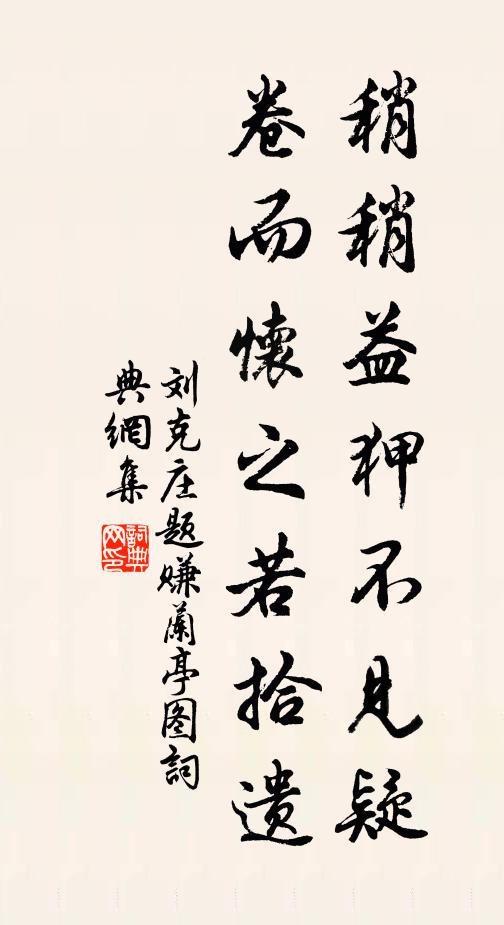 稍稍益狎不见疑
卷而懷之若拾遗
刘克庄题嫌蘭亭图詞
典網集
詞典网印